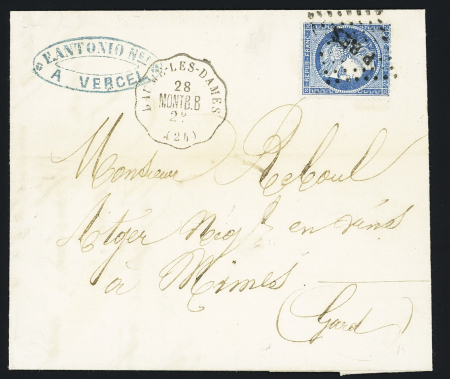 P. ANTONIO NEG
A VERCEL
BAUME-LES-DAMES
28
MONTB.B
(24)
Monsieur Reboul
Atger Négt en vins
à Nîmes
(Gard)